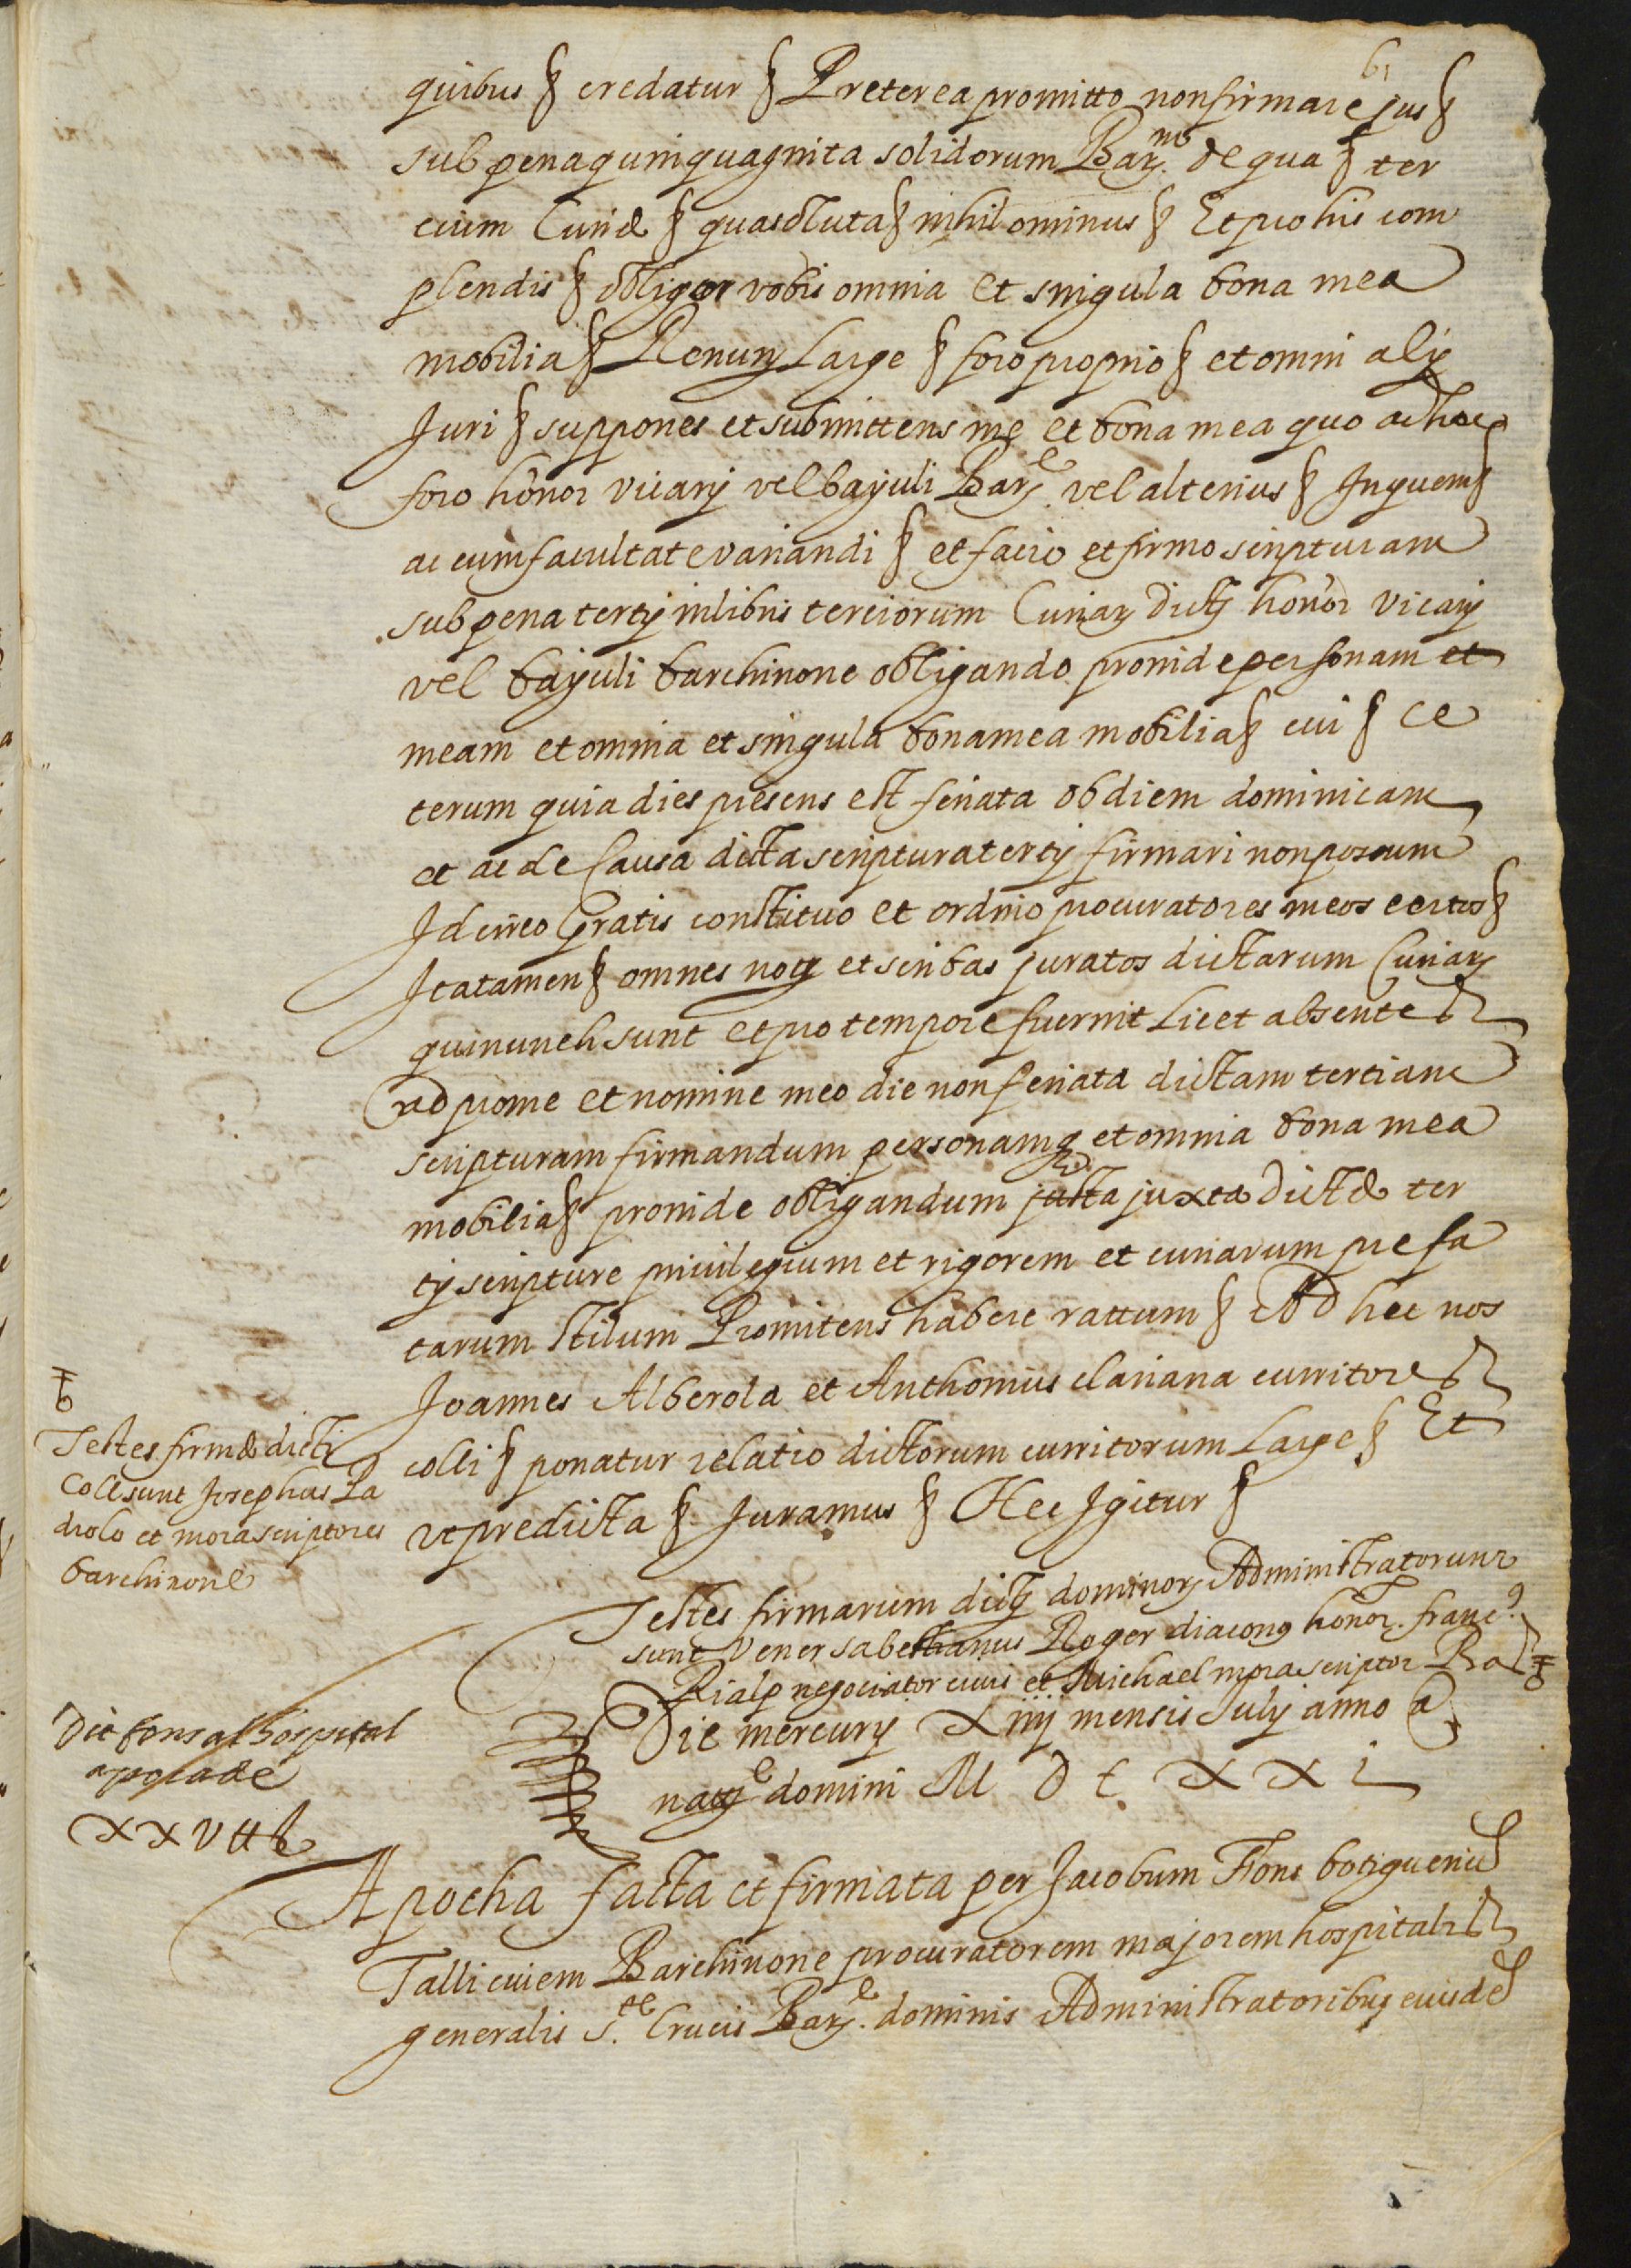 61
quibus § credatur § Preterea promitto non firmare jus §
sub pena quinquaginta solidorum Bar.no de qua § ter
cium Curie § qua soluta § nihilominus § Et pro his com
plendis § obligo vobis omnia et singula bona mea
mobilia § Renun Large § foro proprio § et omni alij
Juri § suppones et submittens me et bona mea quo ad hoc
foro honor vicarij vel bajuli Bar.e vel alterius § Inquem §
ac cum facultate variandi § et facio et firmo scripturam
sub pena tertij in libris terciorum Curiar dictj honor vicarij
vel bajuli barchinone obligando proinde personam et
meam et omnia et singula bona mea mobilia § cui § Ce
terum quia dies presens est feriata ob diem dominicam
et ac de Causa dicta scriptura tertij firmari non possum
Idcirco Gratis constituo et ordino procuratores meos certos §
Ita tamen § omnes noty et scribas juratos dictarum Curiar
qui nunch sunt et pro tempore fuerint Licet absentes
ad pro me et nomine meo die non feriata dictam tertiam
scripturam firmandum personamq et omnia bona mea
mobilia § proinde obligandum justa juxta dicte ter
tij scripture privilegium et rigorem et curiarum prefa
tarum stilum Promitens habere rattum § Ad hec nos
Joannes Alberola et Anthonius clariana curritores
colli § ponatur relatio dictorum curritorum Large § Et
ut predicta § Juramus § Hec Igitur §
Testes firme dicti
Coll sunt Josephus La
drolo et mora scriptores
barchinone
Testes firmarum dictj dominor Administratorum
sunt Vener sabestianus Roger diaconus honor. franc.s
Rialp negociator civis et Michael mora scriptor Ba
Die mercurij Xiiij mensis Julij anno a
naty.e domini M D C XXi
Dit fons al hospital
apocade
XXVtt L
Apocha facta et firmata per Jacobum Fons botiguerius
Talli civem Barchinone procuratorem majorem hospitalis
generalis S.te Crucis Bar.e dominis Administratoribus eiusde